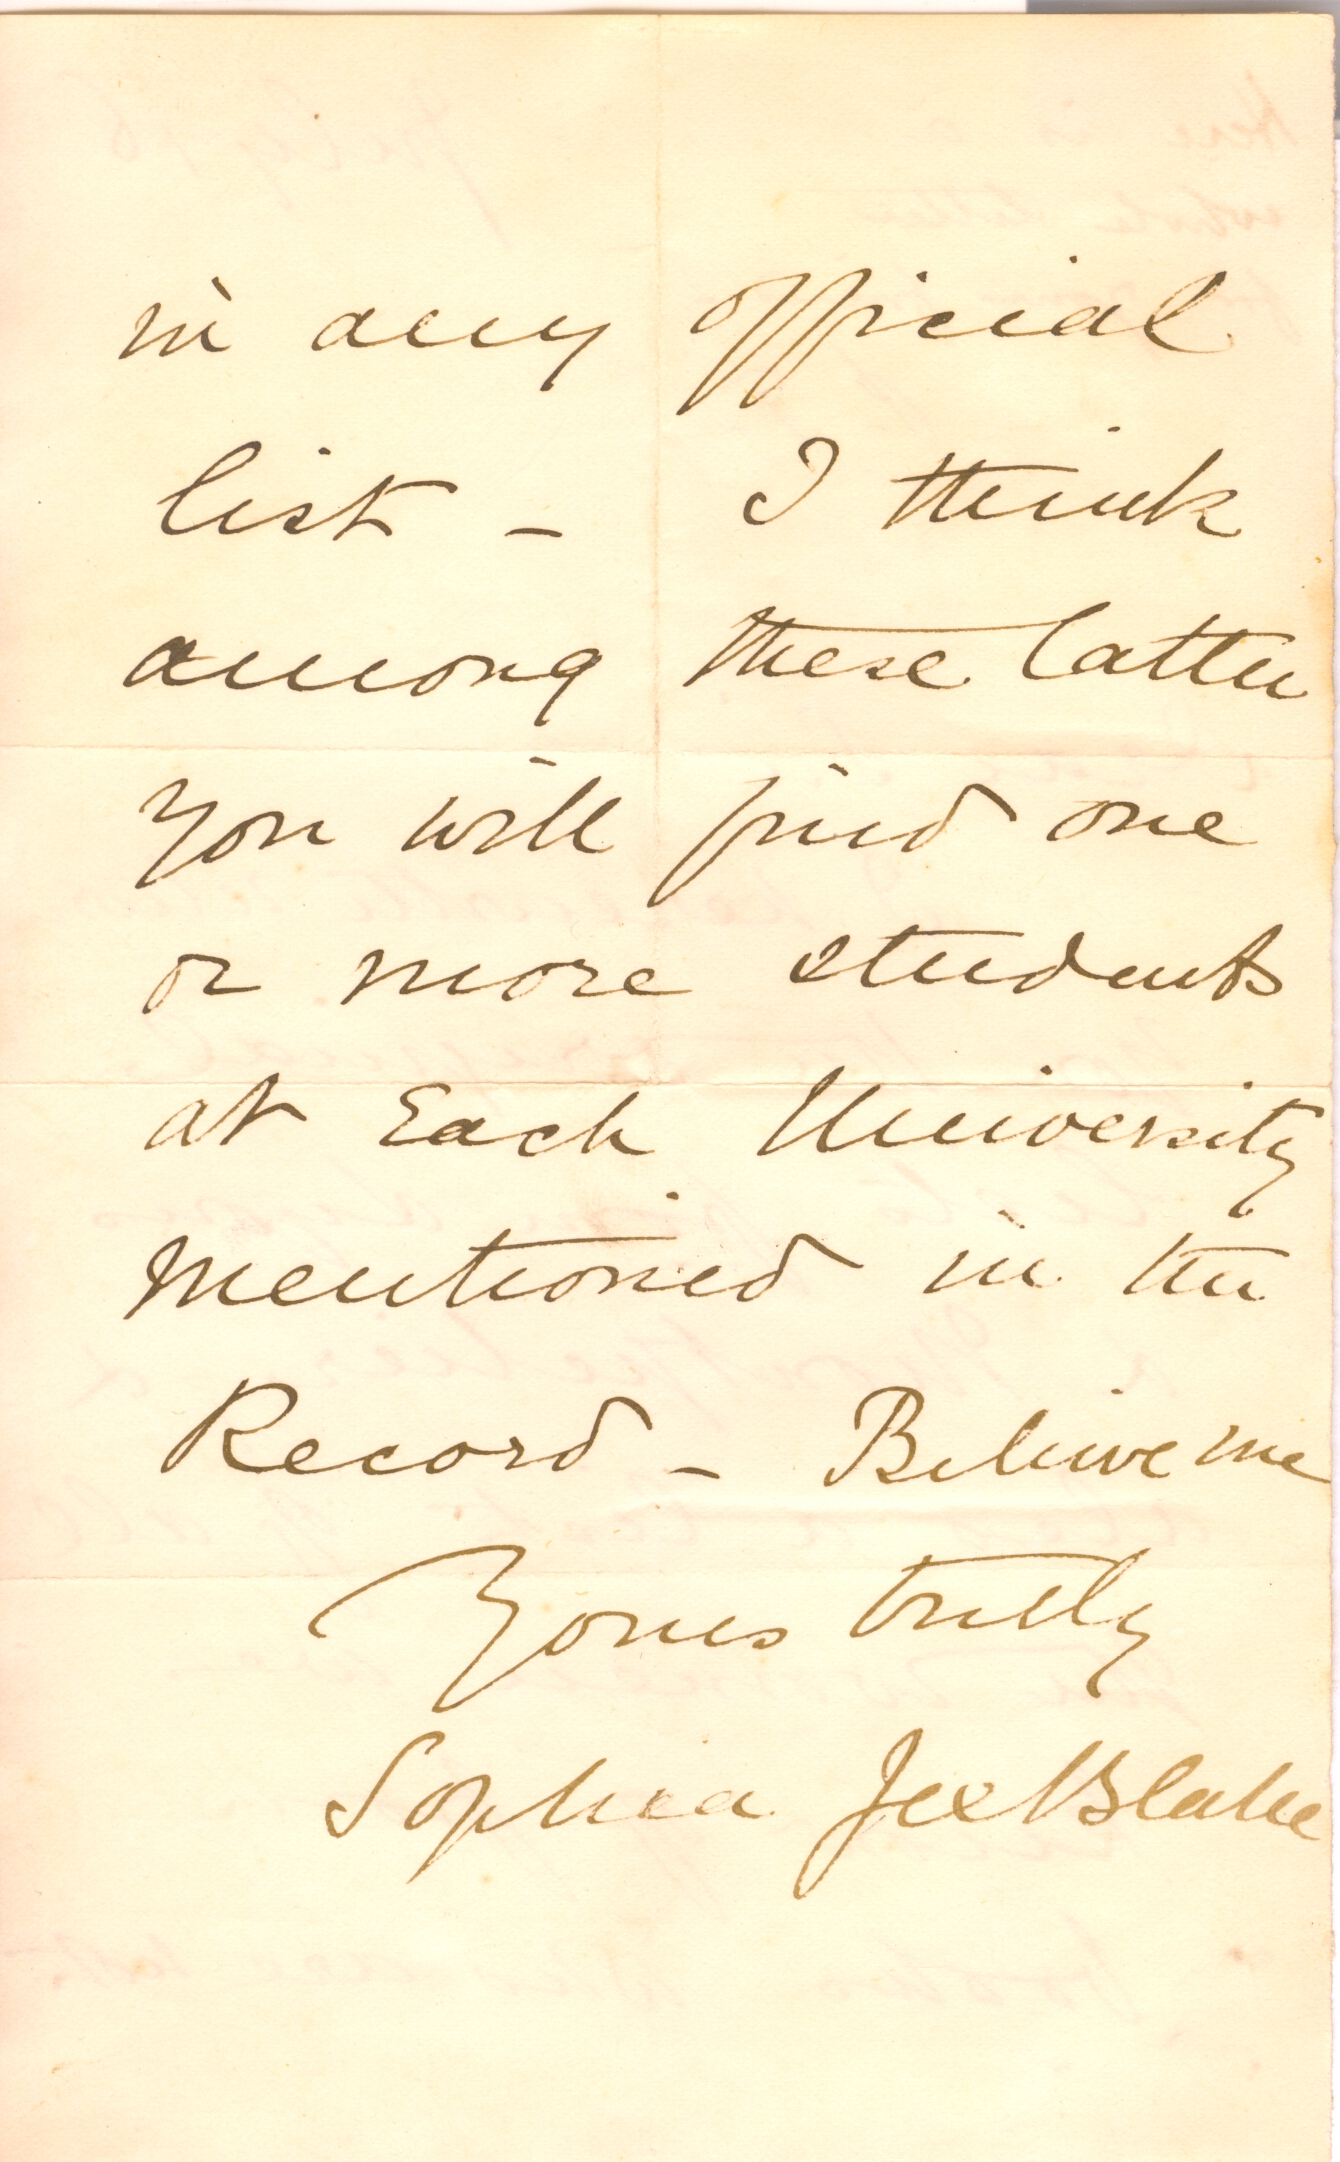 in any official
list - I think
among these latter
you will find one
or more students
at Each University
mentioned in the
Record - Believe me
Yours truly
Sophia Jex Blake